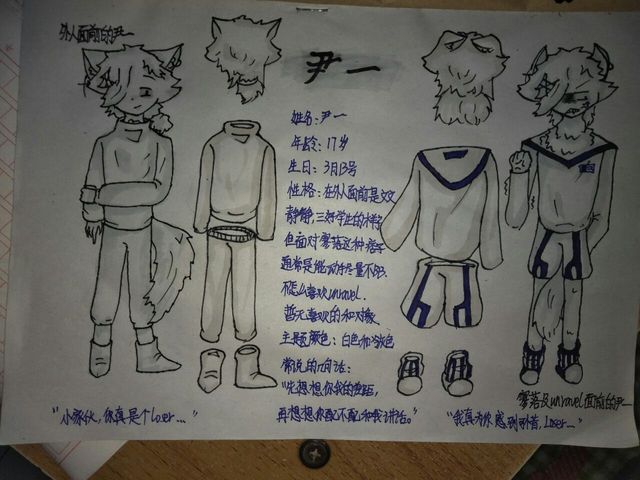 外人面前的尹一
尹一
姓名：尹一
年龄：17岁
生日：3月13号
性格：在外人面前是文文
静静，三好学生的样子
但面对零落这种痞子
通常是能动手尽量不吵.
不怎么喜欢unravel.
暂无喜欢的和对象.
主题颜色：白色和浅色
常说的几句话：
"先想想你我的差距,
再想想你配不配和我讲话。"
"小家伙，你真是个loser..."
零落及unravel面前的尹一
"我真为你感到可惜，Loser..."